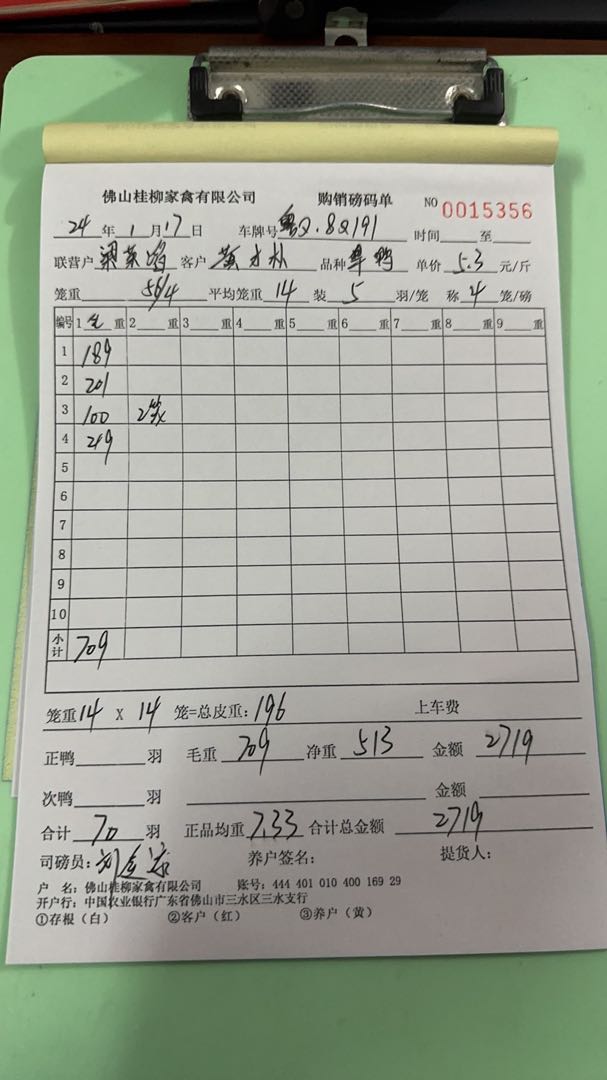 佛山桂柳家禽有限公司 购销磅码单 NO 0015356
24 年 1 月 17 日 车牌号 粤Q.8Q191 时间 至
联营户 客户 黄才朴 品种 单价 5.3 元/斤
笼重 56/4 平均笼重 14 装 5 羽/笼 称 4 笼/磅
编号 1 毛 重 2 重 3 重 4 重 5 重 6 重 7 重 8 重 9 重
1 189
2 201
3 100 2笼
4 219
5
6
7
8
9
10
小计 709
笼重 14 X 14 笼=总皮重: 196 上车费
正鸭 羽 毛重 709 净重 513 金额 2719
次鸭 羽 金额
合计 70 羽 正品均重 7.33 合计总金额 2719
司磅员: 养户签名: 提货人:
户 名: 佛山桂柳家禽有限公司 账号: 444 401 010 400 169 29
开户行: 中国农业银行广东省佛山市三水区三水支行
①存根(白) ②客户(红) ③养户(黄)